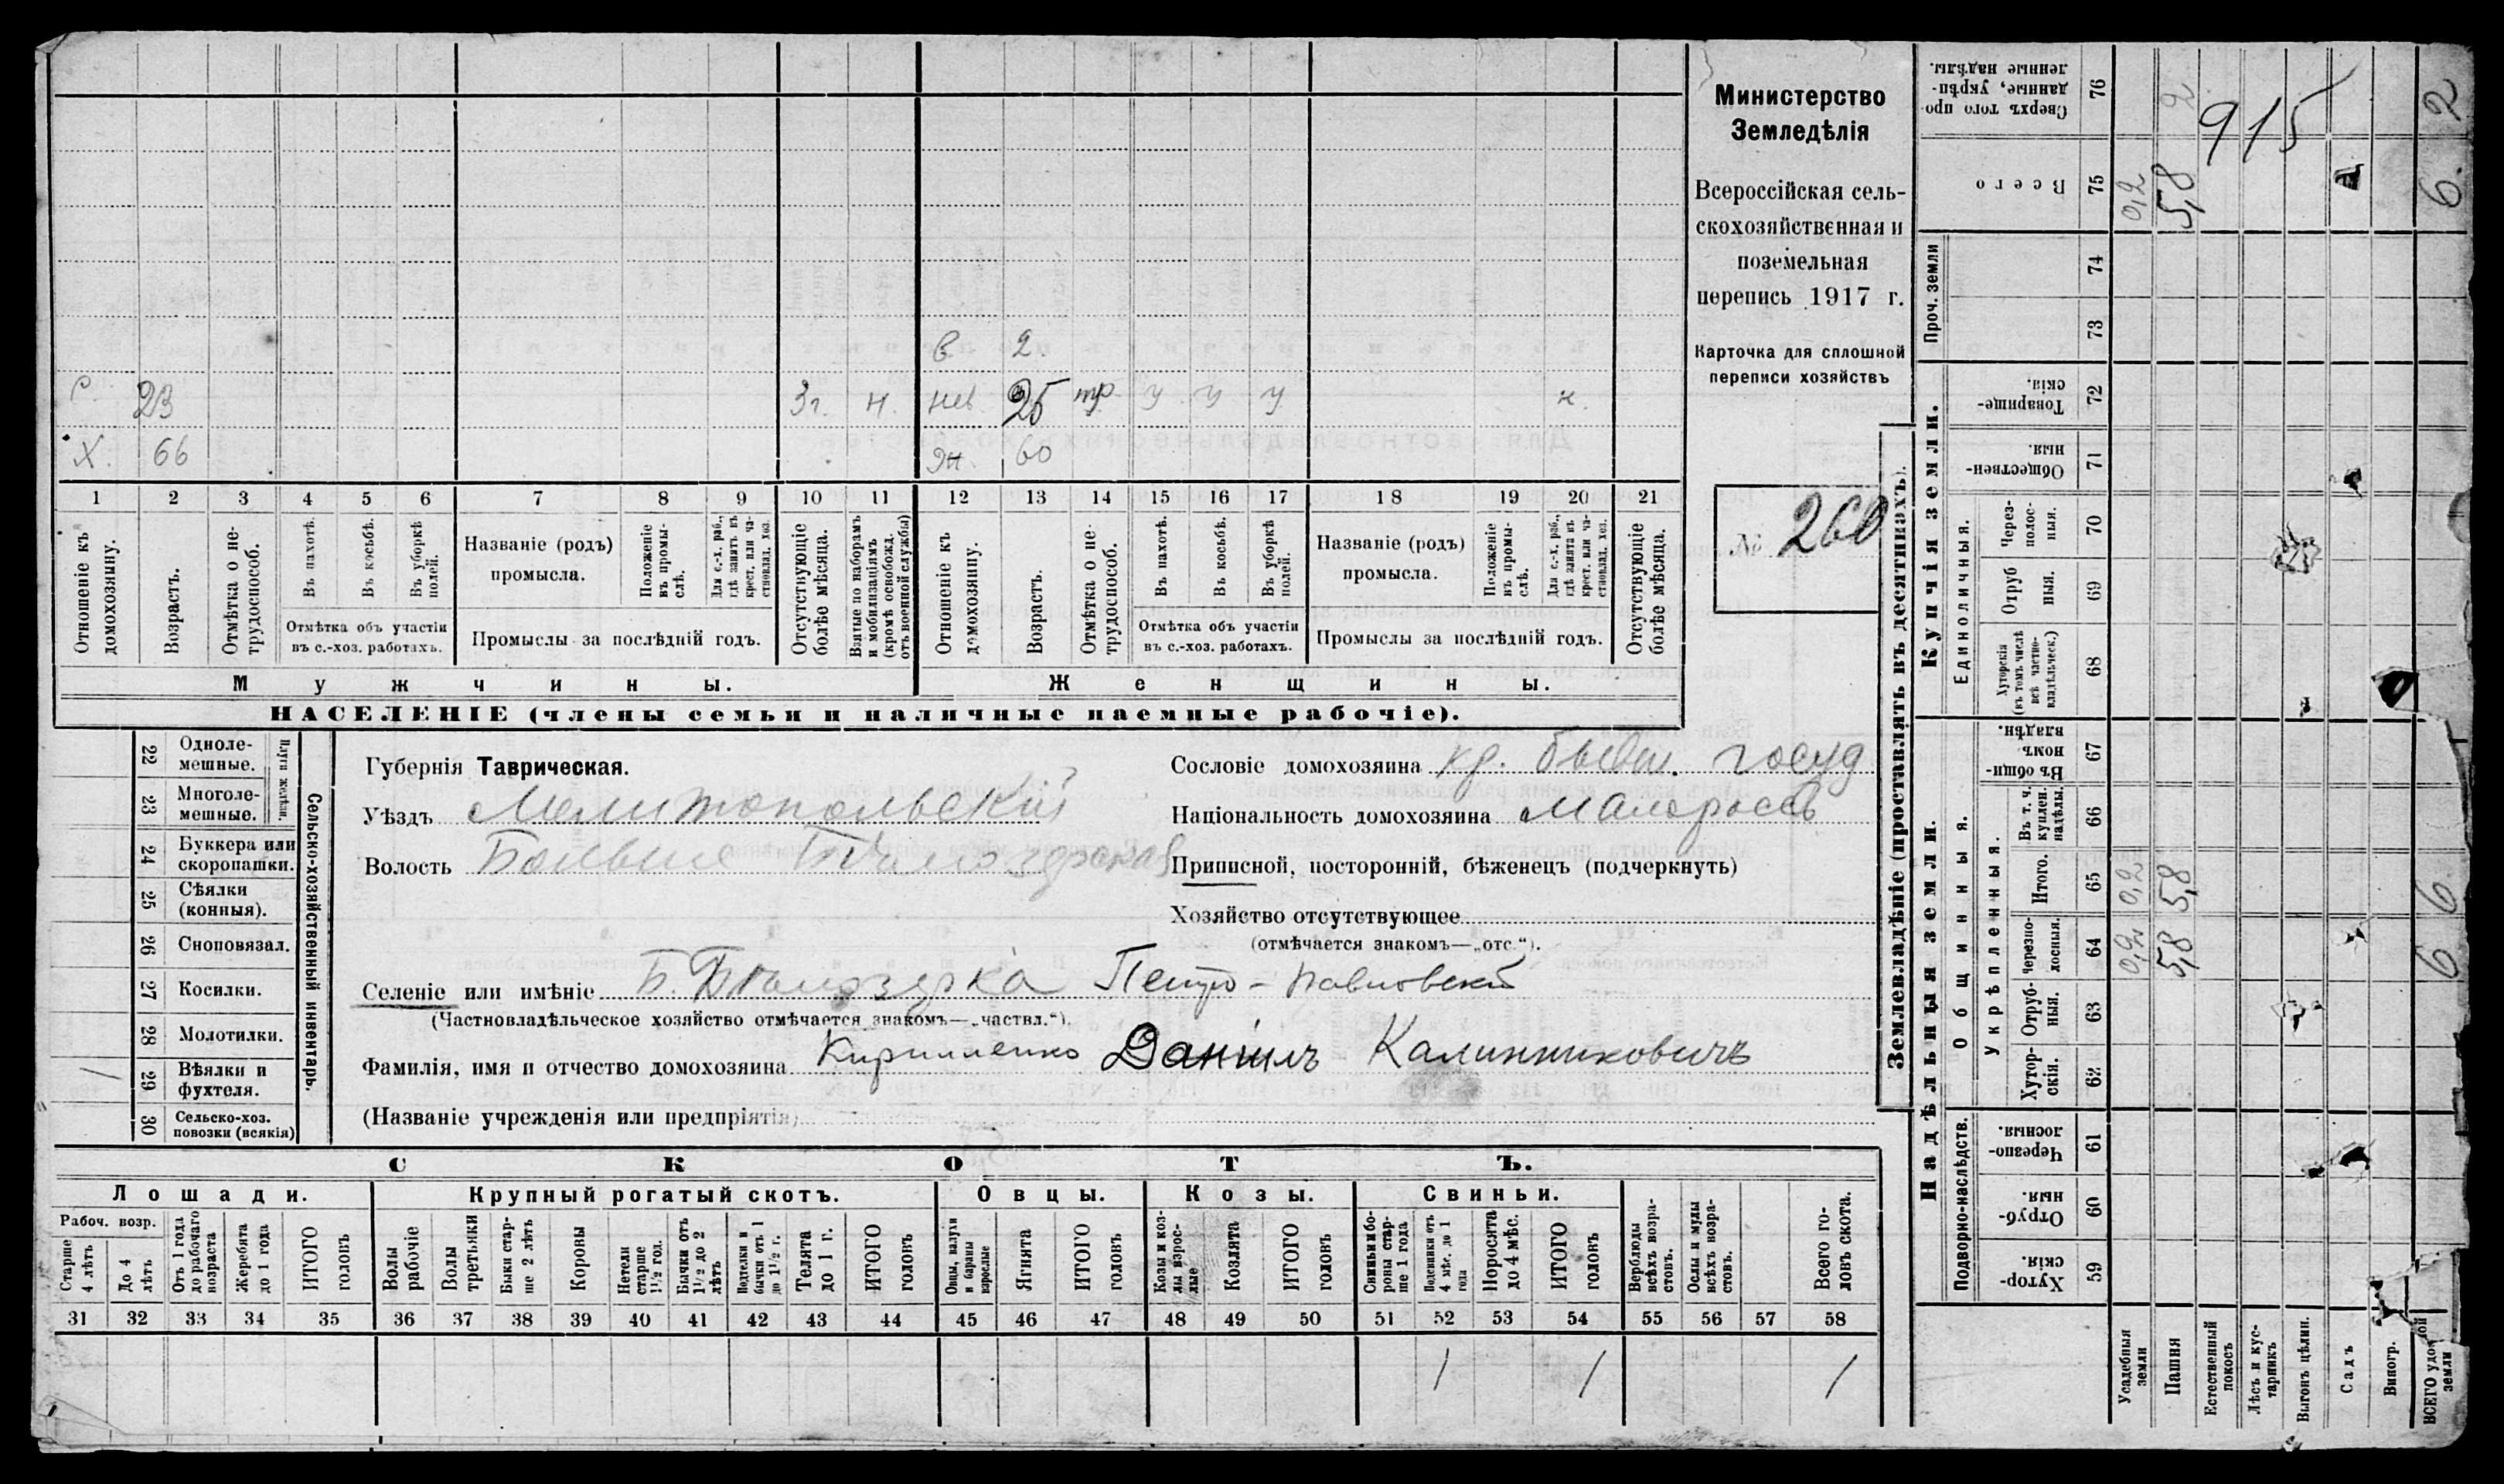 Министерство
Земледѣлія
Всероссійская сель-
скохозяйственная и
поземельная
перепись 1917 г.
Карточка для сплошной
переписи хозяйствъ
№ 260
в. 2.
с. 23 3г. н. нев. 25 тр у у у н.
Х. 66 жн. 60
1 2 3 4 5 6 7 8 9 10 11 12 13 14 15 16 17 18 19 20 21
Отношеніе къ домохозяину.
Возрастъ.
Отмѣтка о не-трудоспособ.
Въ пахотѣ.
Въ косьбѣ.
Въ уборкѣ полей.
Отмѣтка объ участіи
въ с.-хоз. работахъ.
Названіе (родъ)
промысла.
Положеніе въ промы-слѣ.
Для с.-х. раб., гдѣ занятъ въ крест. или ча-стновлад. хоз.
Промыслы за послѣдній годъ.
Отсутствующіе болѣе мѣсяца.
Взятые по наборамъ и мобилизаціямъ (кромѣ освобожд. отъ военной службы)
Отношеніе къ домохозяину.
Возрастъ.
Отмѣтка о не-трудоспособ.
Въ пахотѣ.
Въ косьбѣ.
Въ уборкѣ полей.
Отмѣтка объ участіи
въ с.-хоз. работахъ.
Названіе (родъ)
промысла.
Положеніе въ промы-слѣ.
Для с.-х. раб., гдѣ занята въ крест. или ча-стновлад. хоз.
Промыслы за послѣдній годъ.
Отсутствующіе болѣе мѣсяца.
Мужчины.
Женщины.
НАСЕЛЕНІЕ (члены семьи и наличные наемные рабочіе).
22 Одноле-мешные.
23 Многоле-мешные.
Плуги желѣзн.
24 Буккера или скоропашки.
25 Сѣялки (конныя).
26 Сноповязал.
27 Косилки.
28 Молотилки.
/ 29 Вѣялки и фухтеля.
30 Сельско-хоз. повозки (всякія)
Сельско-хозяйственный инвентарь.
Губернія Таврическая.
Уѣздъ Мелитопольскій
Волость Больше Бѣлозерская
Селеніе или имѣніе Б. Бѣлозерка Петро-Павловской
(Частновладѣльческое хозяйство отмѣчается знакомъ—„частвл.“).
Фамилія, имя и отчество домохозяина Кириленко Даніилъ Калинниковичъ
(Названіе учрежденія или предпріятія)
Сословіе домохозяина кр. бывш. госуд
Національность домохозяина малороссъ
Приписной, посторонній, бѣженецъ (подчеркнуть)
Хозяйство отсутствующее
(отмѣчается знакомъ—„отс.“).
СКОТЪ.
Лошади.
Крупный рогатый скотъ.
Овцы.
Козы.
Свиньи.
Рабоч. возр.
Старше 4 лѣтъ
До 4 лѣтъ
Отъ 1 года до рабочаго возраста
Жеребята до 1 года
ИТОГО головъ
Волы рабочіе
Волы третьяки
Быки стар-ше 2 лѣтъ
Коровы
Нетели старше 1½ год.
Бычки отъ 1½ до 2 лѣтъ
Подтелки и бычки отъ 1 до 1½ г.
Телята до 1 г.
ИТОГО головъ
Овцы, валухи и бараны взрослые
Ягнята
ИТОГО головъ
Козы и коз-лы взрос-лые
Козлята
ИТОГО головъ
Свиньи и бо-ровы стар-ше 1 года
Подсвинки отъ 4 мѣс. до 1 года
Поросята до 4 мѣс.
ИТОГО головъ
Верблюды всѣхъ возра-стовъ.
Ослы и мулы всѣхъ возра-стовъ.
Всего го-ловъ скота.
31 32 33 34 35 36 37 38 39 40 41 42 43 44 45 46 47 48 49 50 51 52 53 54 55 56 57 58
1 1 1
Землевладѣніе (проставлять въ десятинахъ).
Надѣльныя земли.
Купчія земли.
Проч. земли
Подворно-наслѣдств.
Общинныя.
Укрѣпленныя.
Единоличныя.
Хутор-скія. 59
Отруб-ныя. 60
Черезпо-лосныя. 61
Хутор-скія. 62
Отруб-ныя. 63
Черезпо-лосныя. 64 0,2 5,8 6
Итого. 65 0,2 5,8 6
Въ т. ч. куплен. надѣлы. 66
Въ общин-номъ владѣн. 67
Хуторскія (въ томъ числѣ всѣ частно-владѣльческ.) 68
Отруб ныя. 69
Через-полос-ныя. 70
Обществен-ныя. 71
Товарище-скія. 72
73
74
Всего 75 0,2 5,8 6.
Сверхъ того про-данные, укрѣп-ленные надѣлы. 76 2 2
915
Усадебныя земли
Пашня
Естественный покосъ
Лѣсъ и кус-тарникъ
Выгонъ цѣлин.
Садъ
Виногр.
ВСЕГО земли